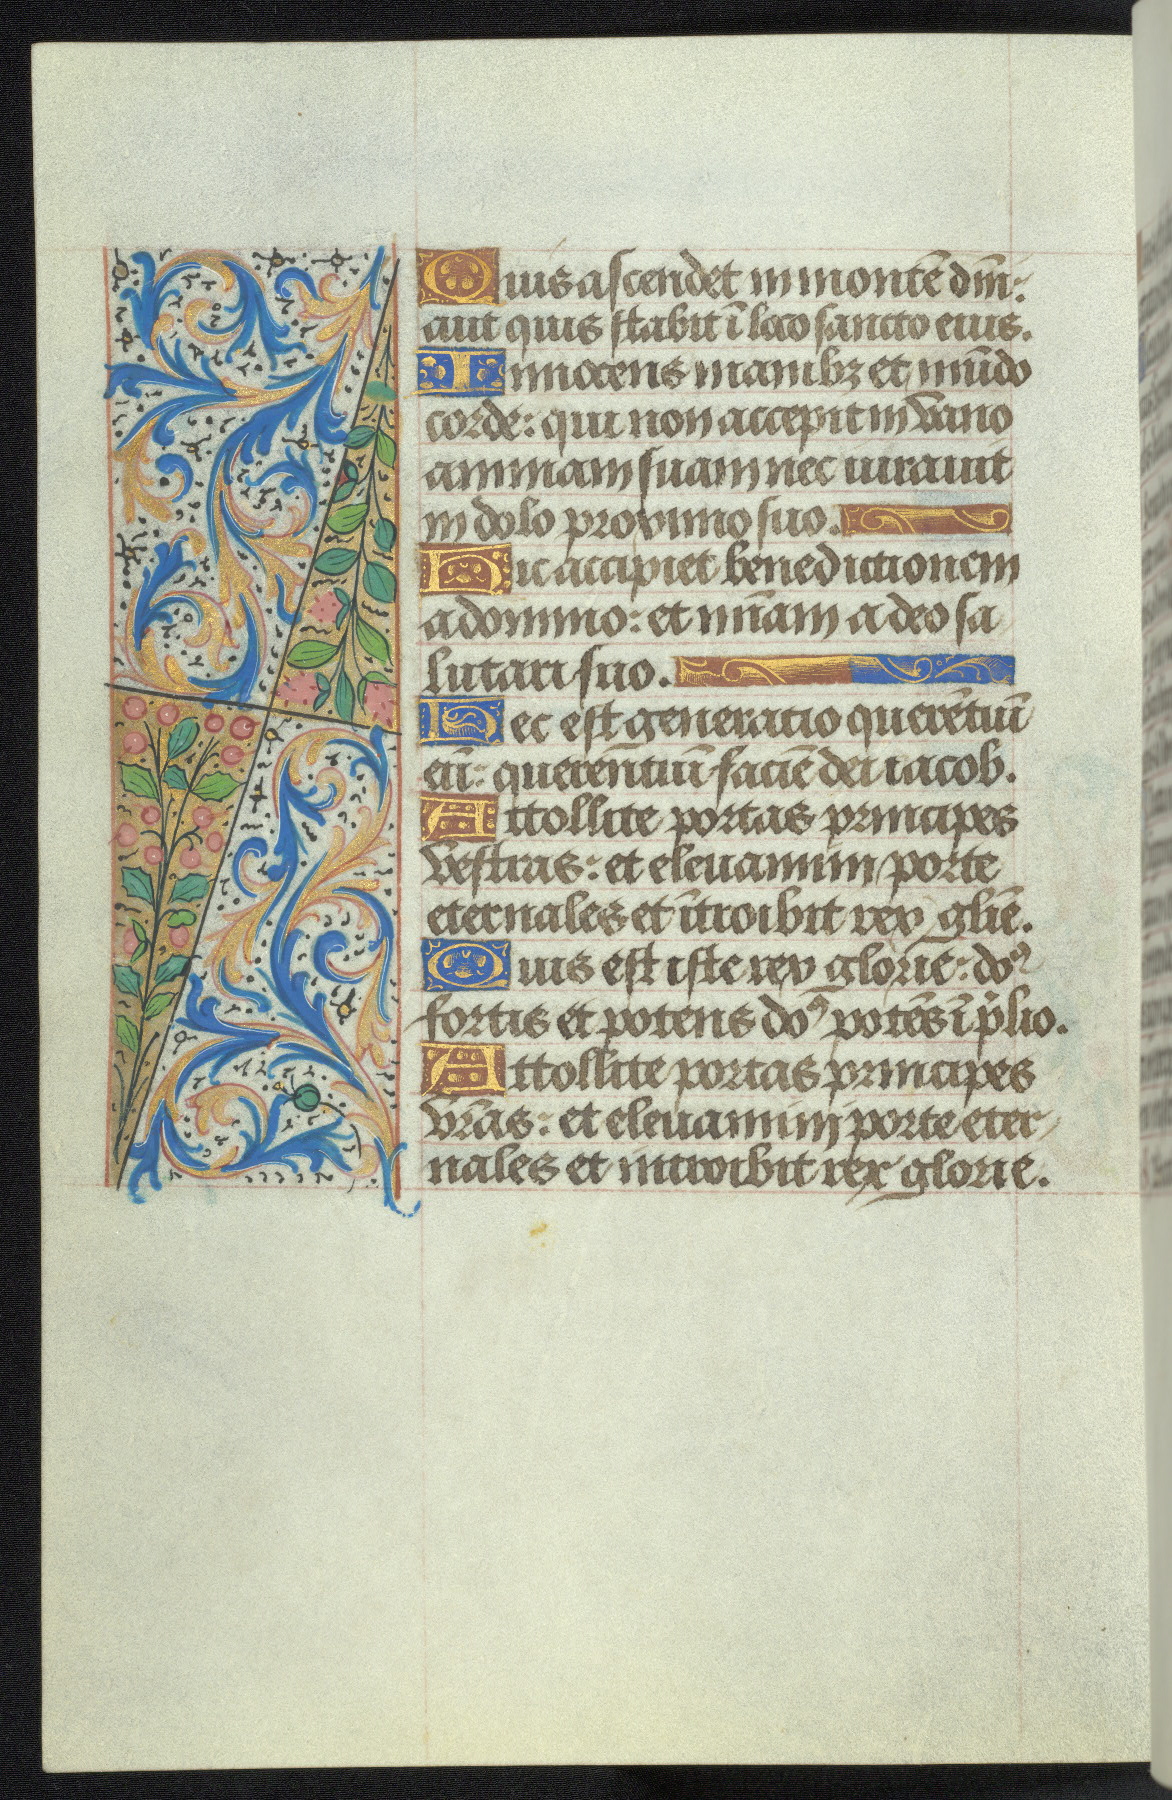 Quis ascendet in montē dm̄:
aut quis stabit ī loco sancto eius.
Innocens manibꝫ et mūdo
corde: qui non accepit in vano
animam suam nec iurauit
in dolo proximo suo.
Hic accipiet benedictionem
a domino: et mīam a deo sa
lutari suo.
Hec est generatio querētiū
eū: querentiū faciē dei iacob.
Attollite portas principes
vestras: et eleuamini porte
eternales et ītroibit rex glīe.
Quis est iste rex glorie: doꝰ
fortis et potens doꝰ potēs ī p̄lio.
Attollite portas principes
vr̄as: et eleuamini porte eter
nales et introibit rex glorie.